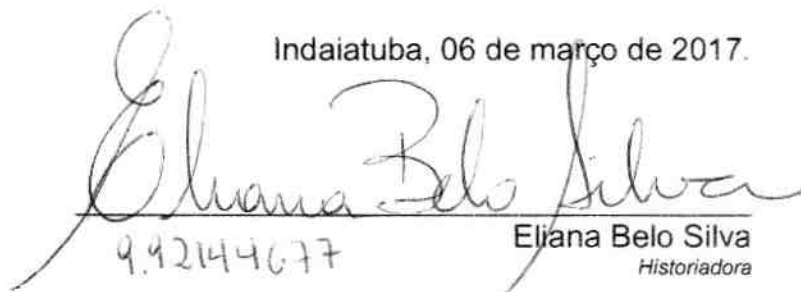 Indaiatuba, 06 de março de 2017.
Eliana Belo Silva
9.92144677
Eliana Belo Silva
Historiadora